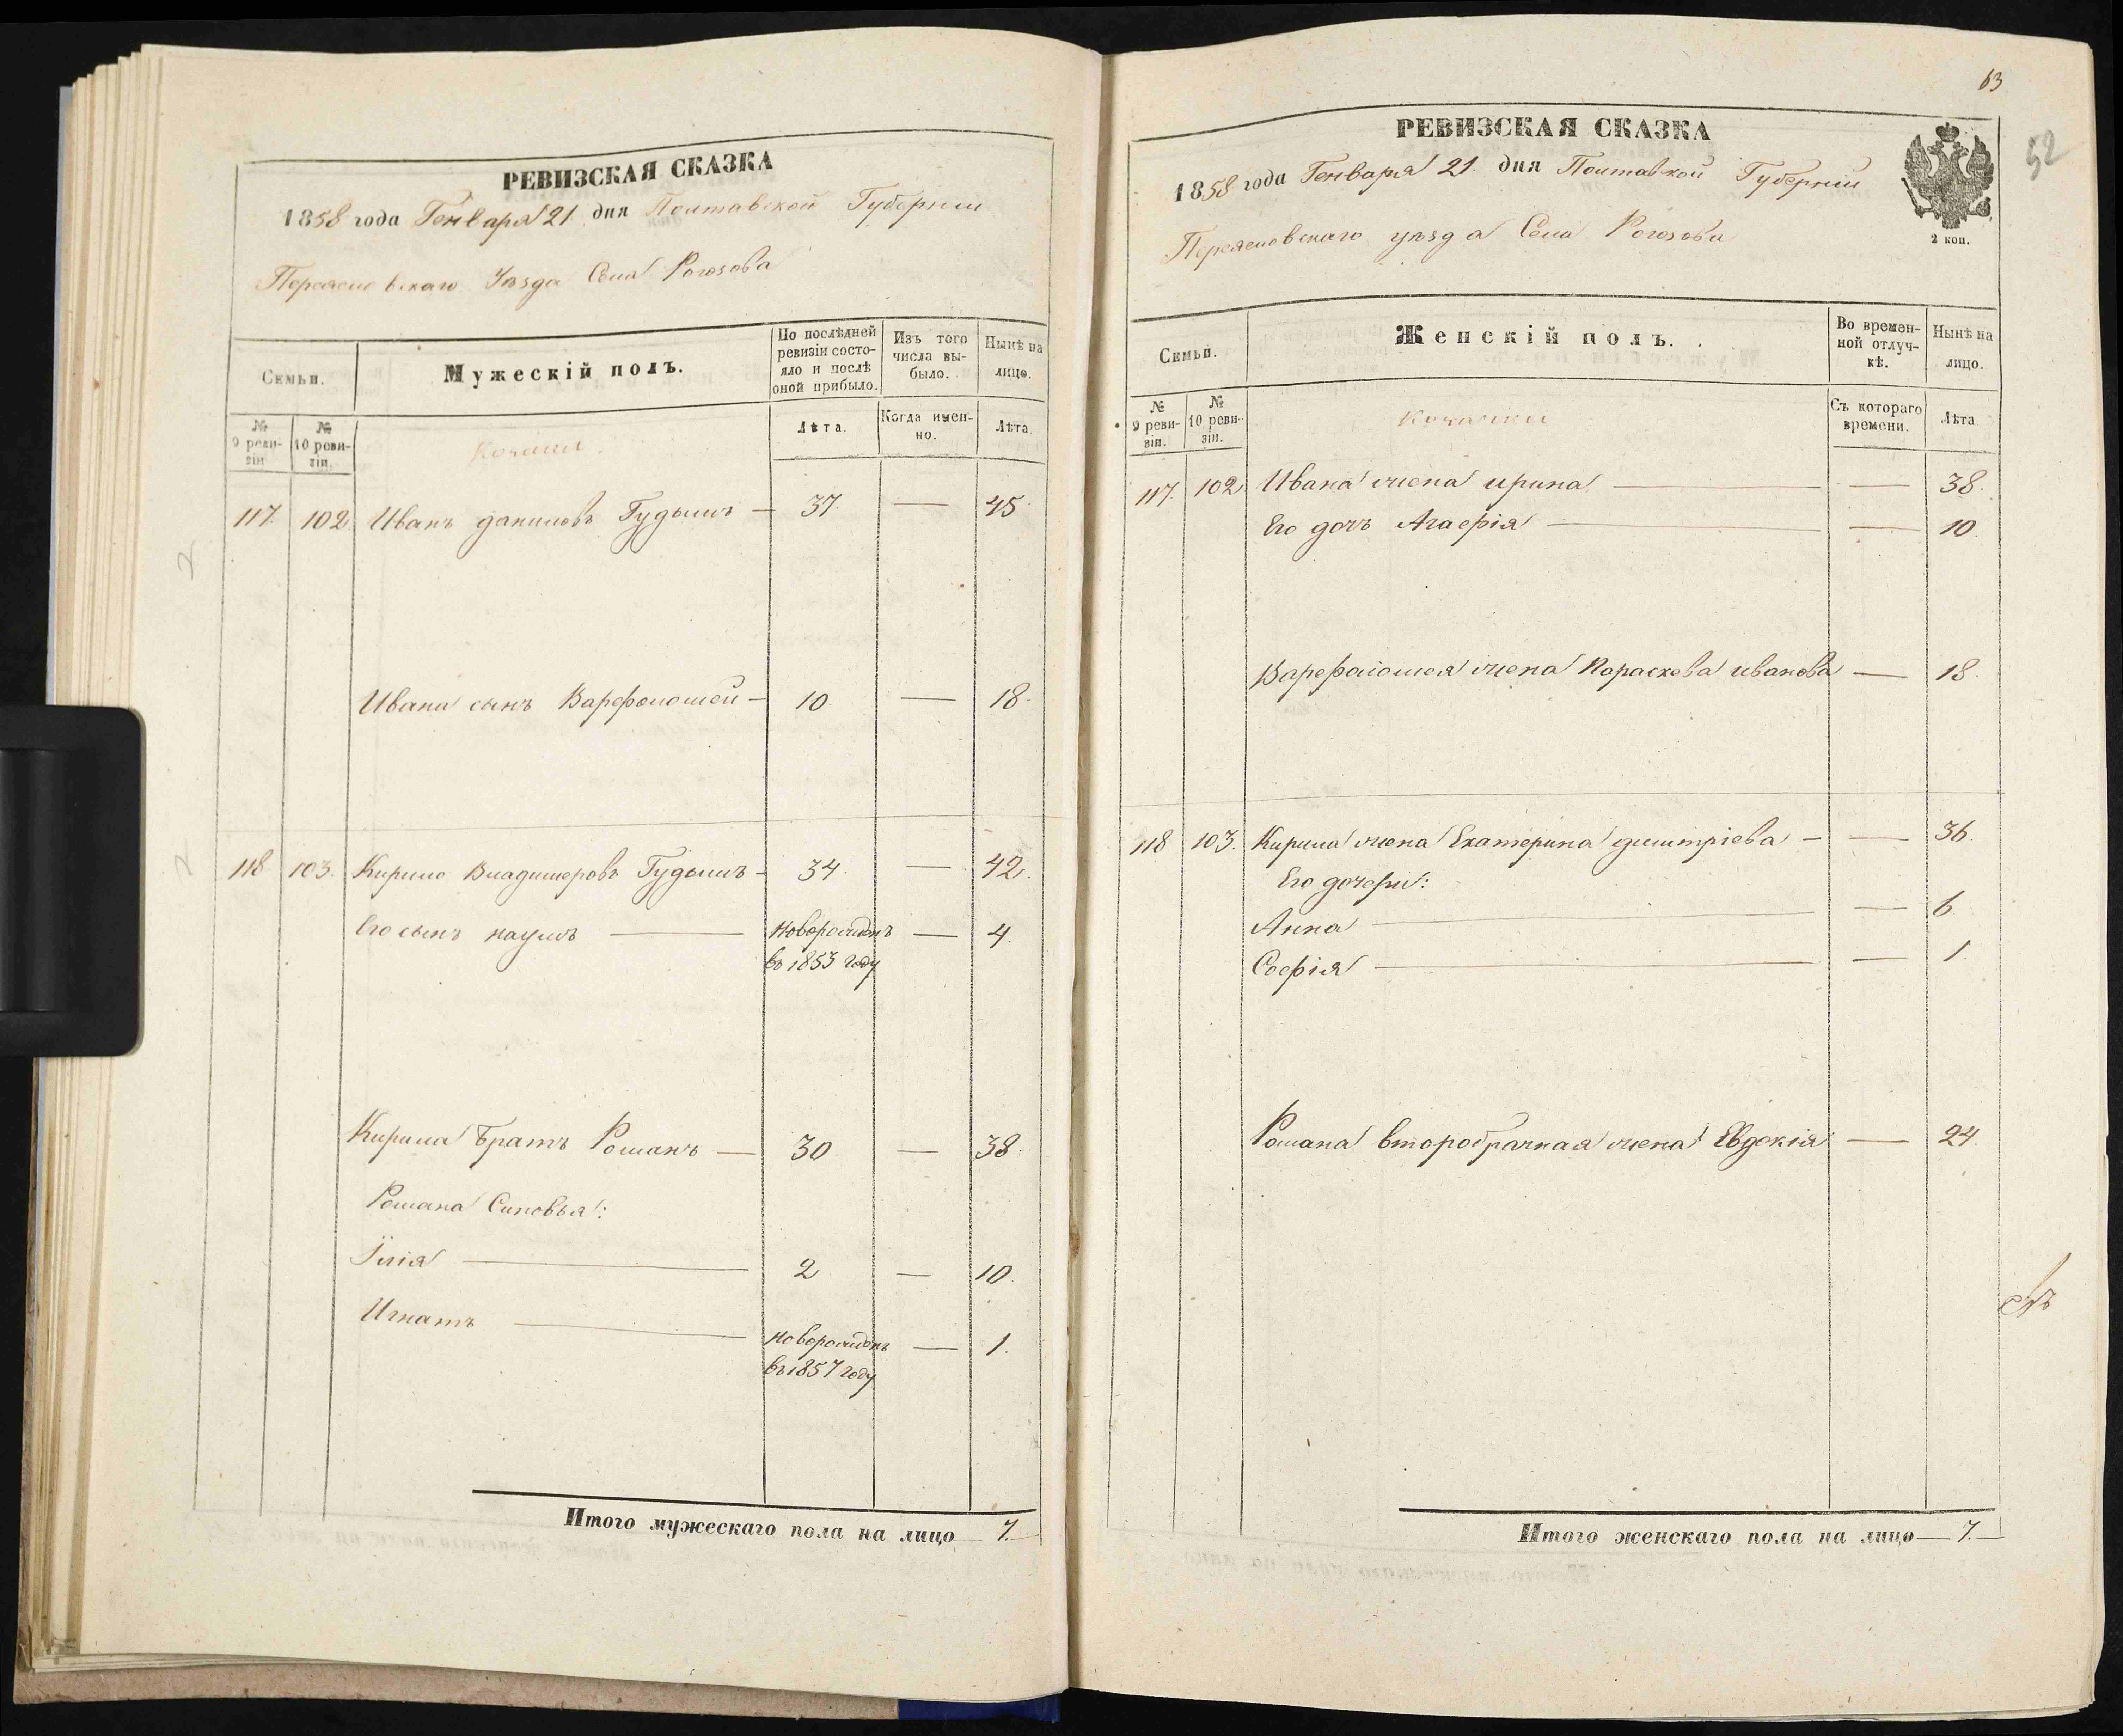 РЕВИЗСКАЯ СКАЗКА
1858 года Генваря 21 дня Полтавской Губернии
Переяславскаго Уѣзда Села Рогозова
Семьи.
Мужескій полъ.
По послѣдней ревизіи состояло и послѣ оной прибыло.
Изъ того числа выбыло.
Нынѣ на лицо.
№ 9 ревизіи
№ 10 ревизіи.
Козаки
Лѣта.
Когда именно.
Лѣта.
117. 102 Иванъ даниловъ Гудымъ — 37 — 45.
Ивана сынъ Варфоломей — 10 — 18.
118 103. Кирило Владимеровъ Гудымъ — 34. — 42.
Его сынъ наумъ — новорожденъ — 4.
въ 1853 году
Кирила Братъ Романъ — 30 — 38.
Романа Сыновья:
Їлія — 2 — 10.
Игнатъ — новорожденъ — 1.
въ 1857 году
Итого мужескаго пола на лицо 7.
63
52
РЕВИЗСКАЯ СКАЗКА
1858 года Генваря 21. дня Полтавской Губерніи
Переяславскаго уѣзда Села Рогозова
2 коп.
Семьи.
Женскій полъ.
Во временной отлучкѣ.
Нынѣ на лицо.
№ 9 ревизіи.
№ 10 ревизіи.
Козачки
Съ котораго времени.
Лѣта.
117. 102 Ивана жена ирина — — 38.
Его дочь Агафія — — 10.
Варфоломея жена Параскева иванова — 18.
118 103. Кирила жена Екатерина димитріева — — 36.
Его дочери:
Анна — — 6
Софія — — 1.
Романа второбрачная жена Евдокія — 24.
Итого женскаго пола на лицо — 7. —